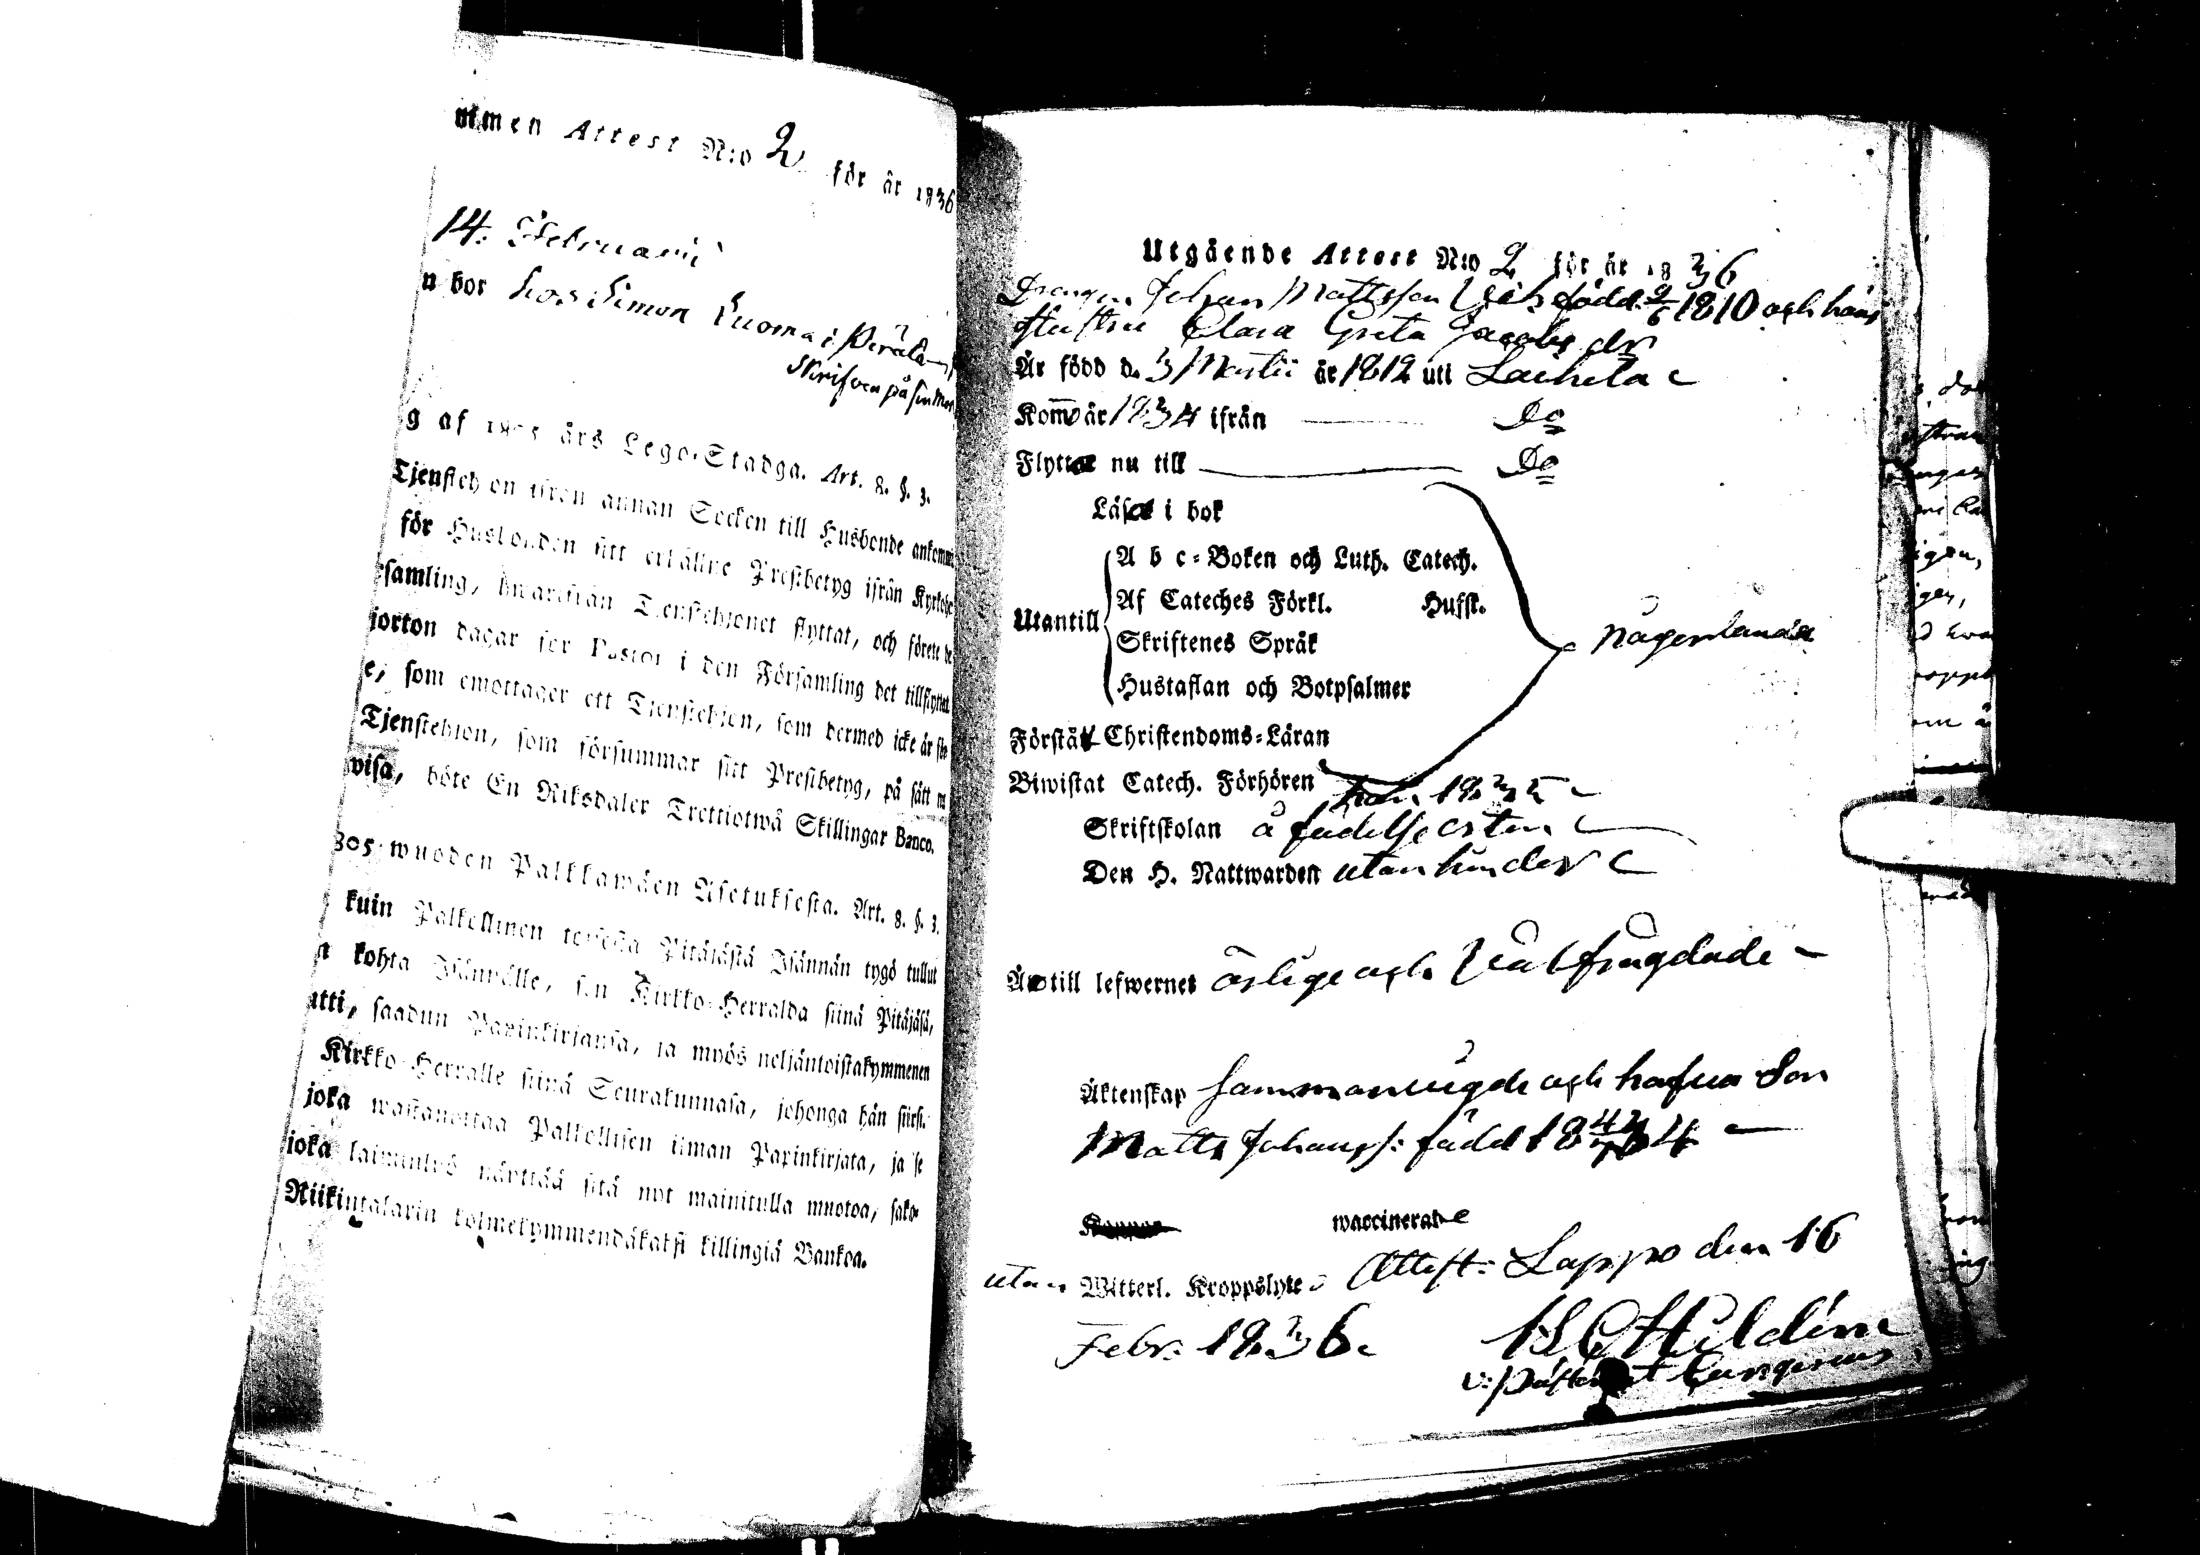 mmen Attest N:o 2 för år 1836
14: Februarii
n bor hos Simon Luoma i Perälä
Skrifven på sin
g af 1805 års Lego-Stadga. Art. 8. §. 3.
Tjenstehjon ifrån annan Socken till Husbonde ankommi
för Husbonden sitt erhållne Prestbetyg ifrån Kyrkohe
samling, hwarifrån Tjenstehjonet flyttat, och förete de
jorton dagar för Pastor i den Församling det tillflyttat
e, som emottager ett Tjenstehjon, som dermed icke är
Tjenstehjon, som försummar sitt Prestbetyg, på sätt
wisa, böte En Riksdaler Trettiotwå Skillingar Banco.
805 wuoden Palkkawäen Asetuksesta. Art. 8. §. 3.
kuin Palkollinen toisesta Pitäjästä Isännän tygö tullut
a kohta Isännälle, sen Kirkko-Herralda siinä Pitäjäsä,
utti, saadun Papinkirjansa, ja myös neljäntoistakymmenen
Kirkko-Herralle siinä Seurakunnasa, johonga hän siirsi.
joka wastaanottaa Palkollisen ilman Papinkirjata, ja se
joka laiminlyö näyttää sitä nyt mainitulla muotoa, sako-
Riikintalarin kolmekymmendäkaksi killingiä Bankoa.
Utgående Attest N:o 2 för år 1836
Drengen Johan Mattsson född 2/6 1810 och hans
Hustru Clara Greta Jacobsdr
Är född d. 3 Martii år 1812 uti Lachela
Kom år 1834 ifrån Do
Flyttar nu till Do
Läsa i bok
A b c-Boken och Luth. Catech.
Af Cateches Förkl. Hufst.
Utantill
Skriftenes Språk
någorlunda
Hustaflan och Botpsalmer
Förstå Christendoms-Läran
Biwistat Catech. Förhören 1835
Skriftskolan å födelseorten
Den H. Nattwarden utan hinder
Äro till lefwernet ärlige och välfrägdade
Äktenskap sammanvigde och hafva Son
Matts Johanss: född 18 34
waccinerade
utan Witterl. Kroppslyte Attest: Lappo den 16
Febr: 1836.
Hildén
v: Pastor